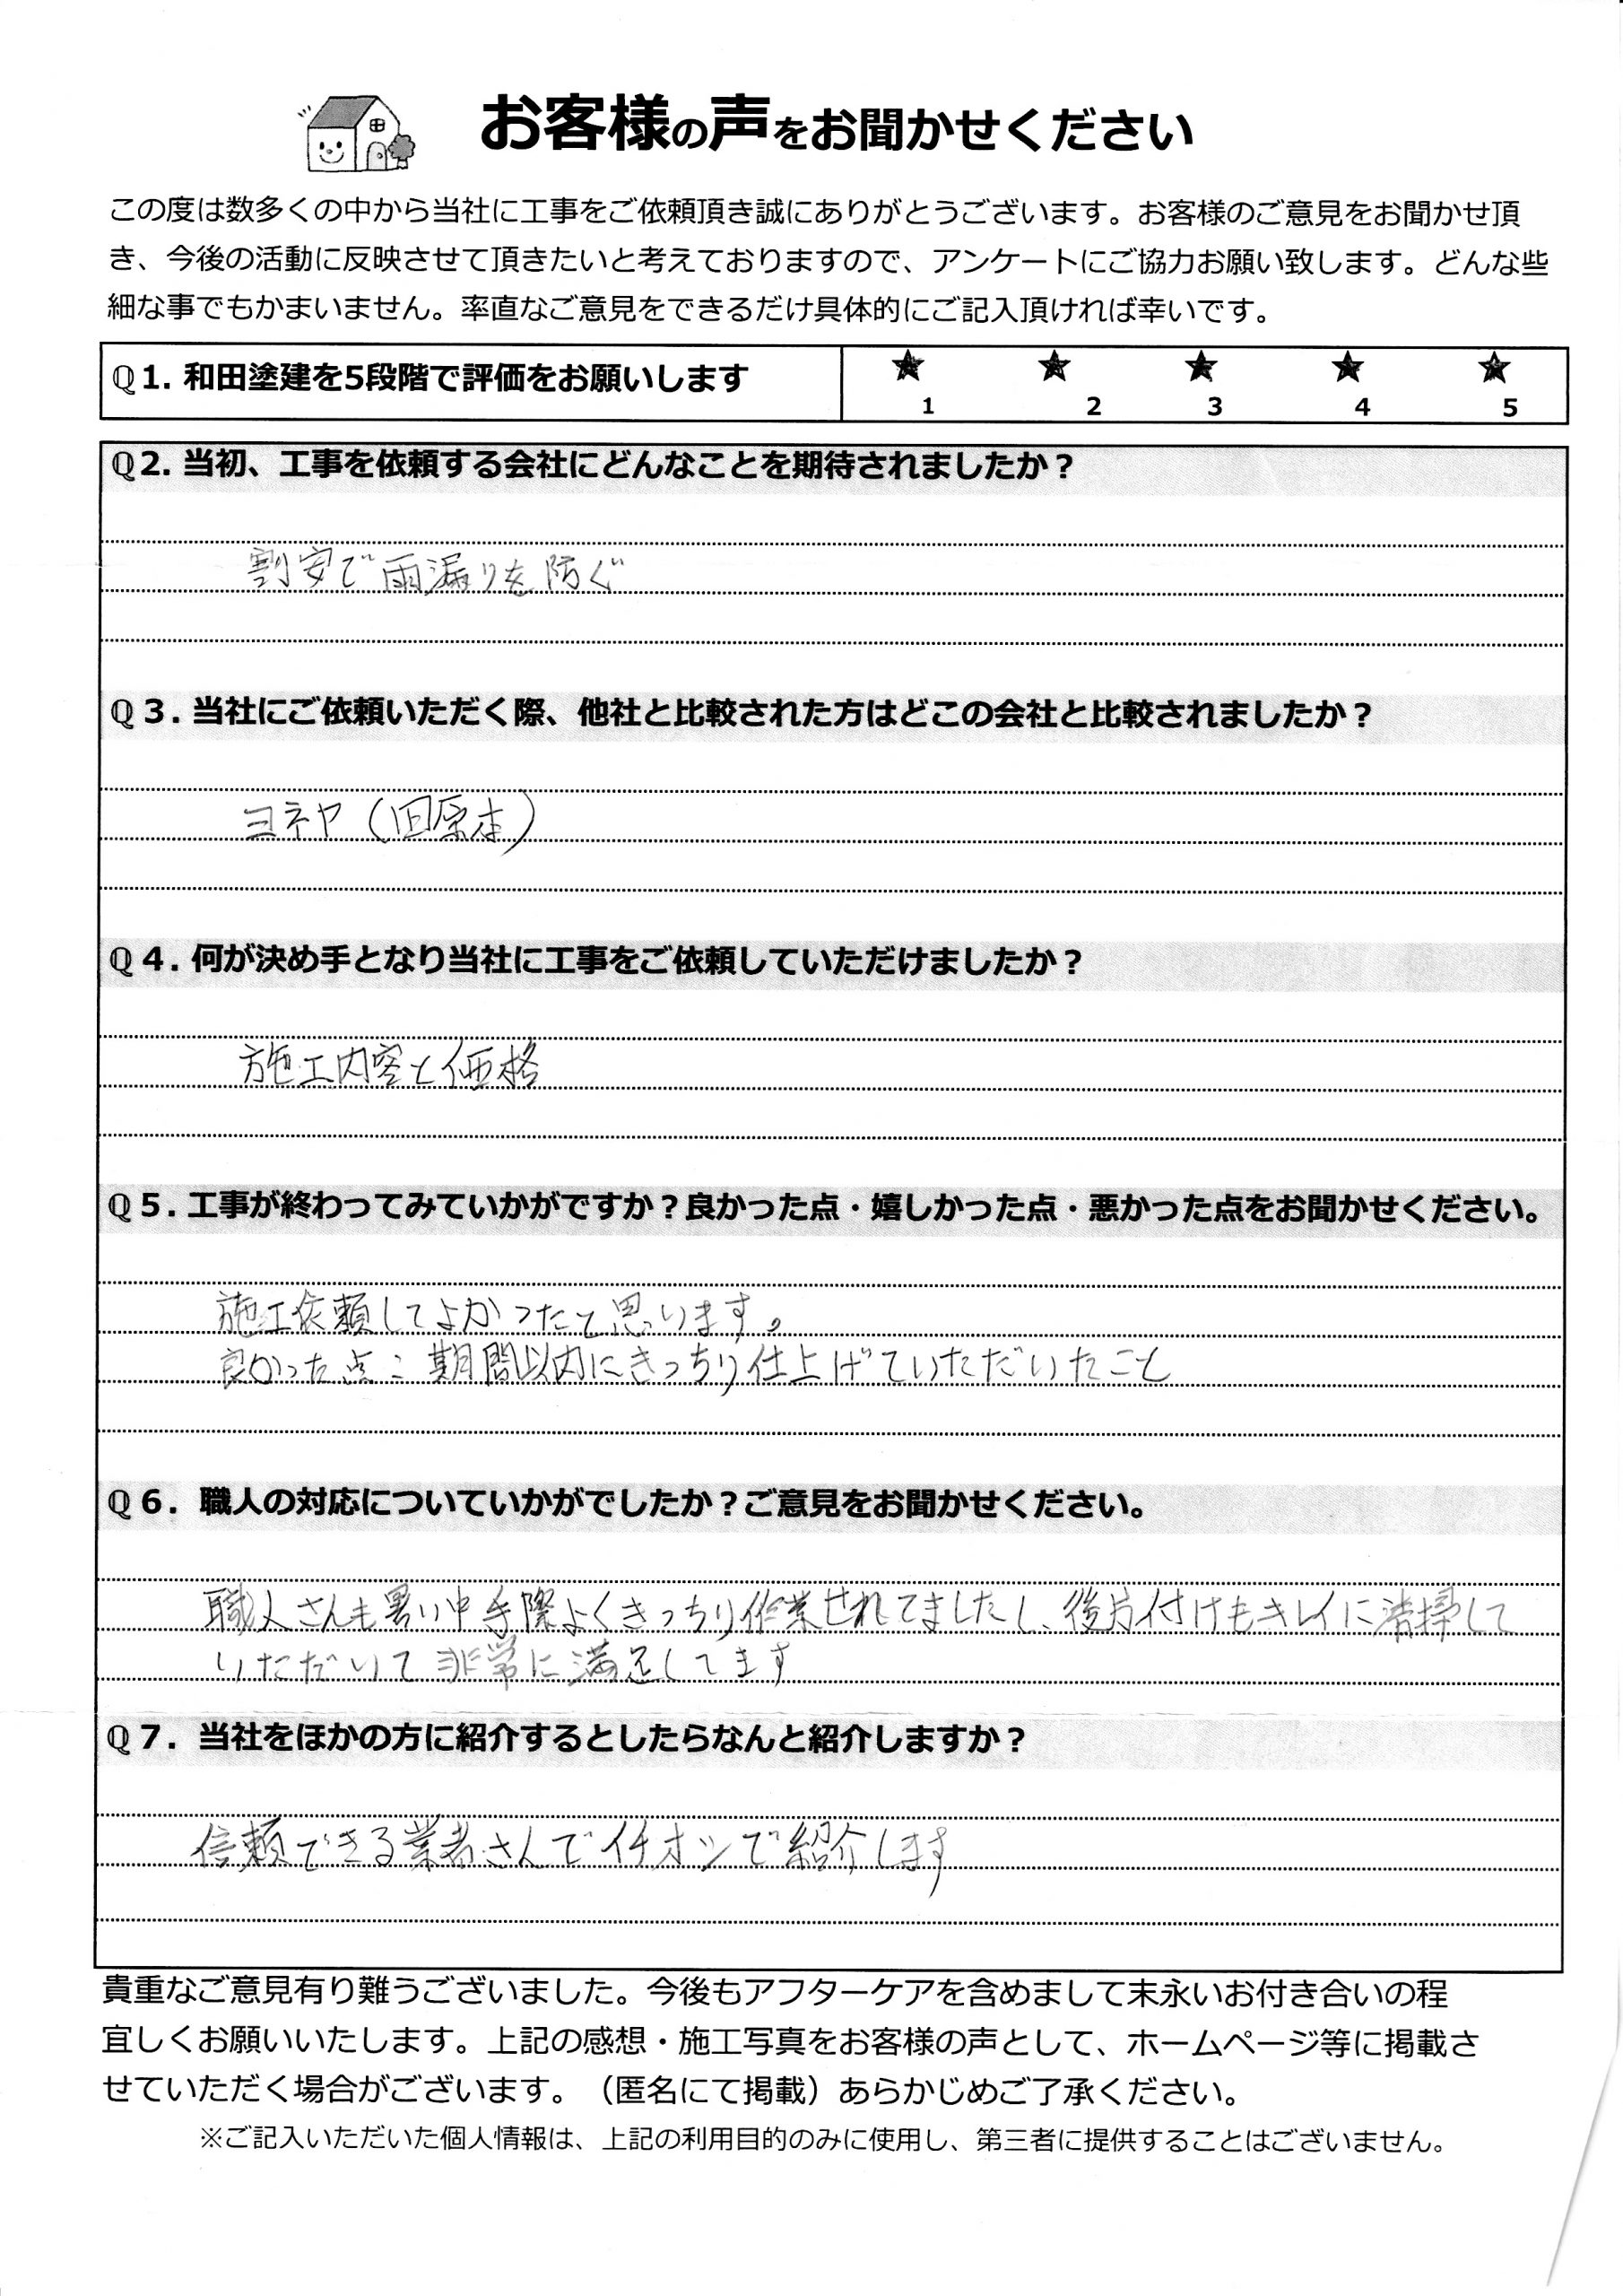 お客様の声をお聞かせください
この度は数多くの中から当社に工事をご依頼頂き誠にありがとうございます。お客様のご意見をお聞かせ頂
き、今後の活動に反映させて頂きたいと考えておりますので、アンケートにご協力お願い致します。どんな些
細な事でもかまいません。率直なご意見をできるだけ具体的にご記入頂ければ幸いです。
Q1. 和田塗建を5段階で評価をお願いします ★ ★ ★ ★ ★
1 2 3 4 5
Q2. 当初、工事を依頼する会社にどんなことを期待されましたか？
割安で雨漏りを防ぐ
Q3. 当社にご依頼いただく際、他社と比較された方はどこの会社と比較されましたか？
ヨネヤ（田原本）
Q4. 何が決め手となり当社に工事をご依頼していただけましたか？
施工内容と価格
Q5. 工事が終わってみていかがですか？良かった点・嬉しかった点・悪かった点をお聞かせください。
施工依頼してよかったと思います。
良かった点：期間以内にきっちり仕上げていただいたこと
Q6. 職人の対応についていかがでしたか？ご意見をお聞かせください。
職人さんも暑い中手際よくきっちり作業されてましたし、後片付けもキレイに清掃して
いただいて非常に満足してます
Q7. 当社をほかの方に紹介するとしたらなんと紹介しますか？
信頼できる業者さんでイチオシで紹介します
貴重なご意見有り難うございました。今後もアフターケアを含めまして末永いお付き合いの程
宜しくお願いいたします。上記の感想・施工写真をお客様の声として、ホームページ等に掲載さ
せていただく場合がございます。（匿名にて掲載）あらかじめご了承ください。
※ご記入いただいた個人情報は、上記の利用目的のみに使用し、第三者に提供することはございません。